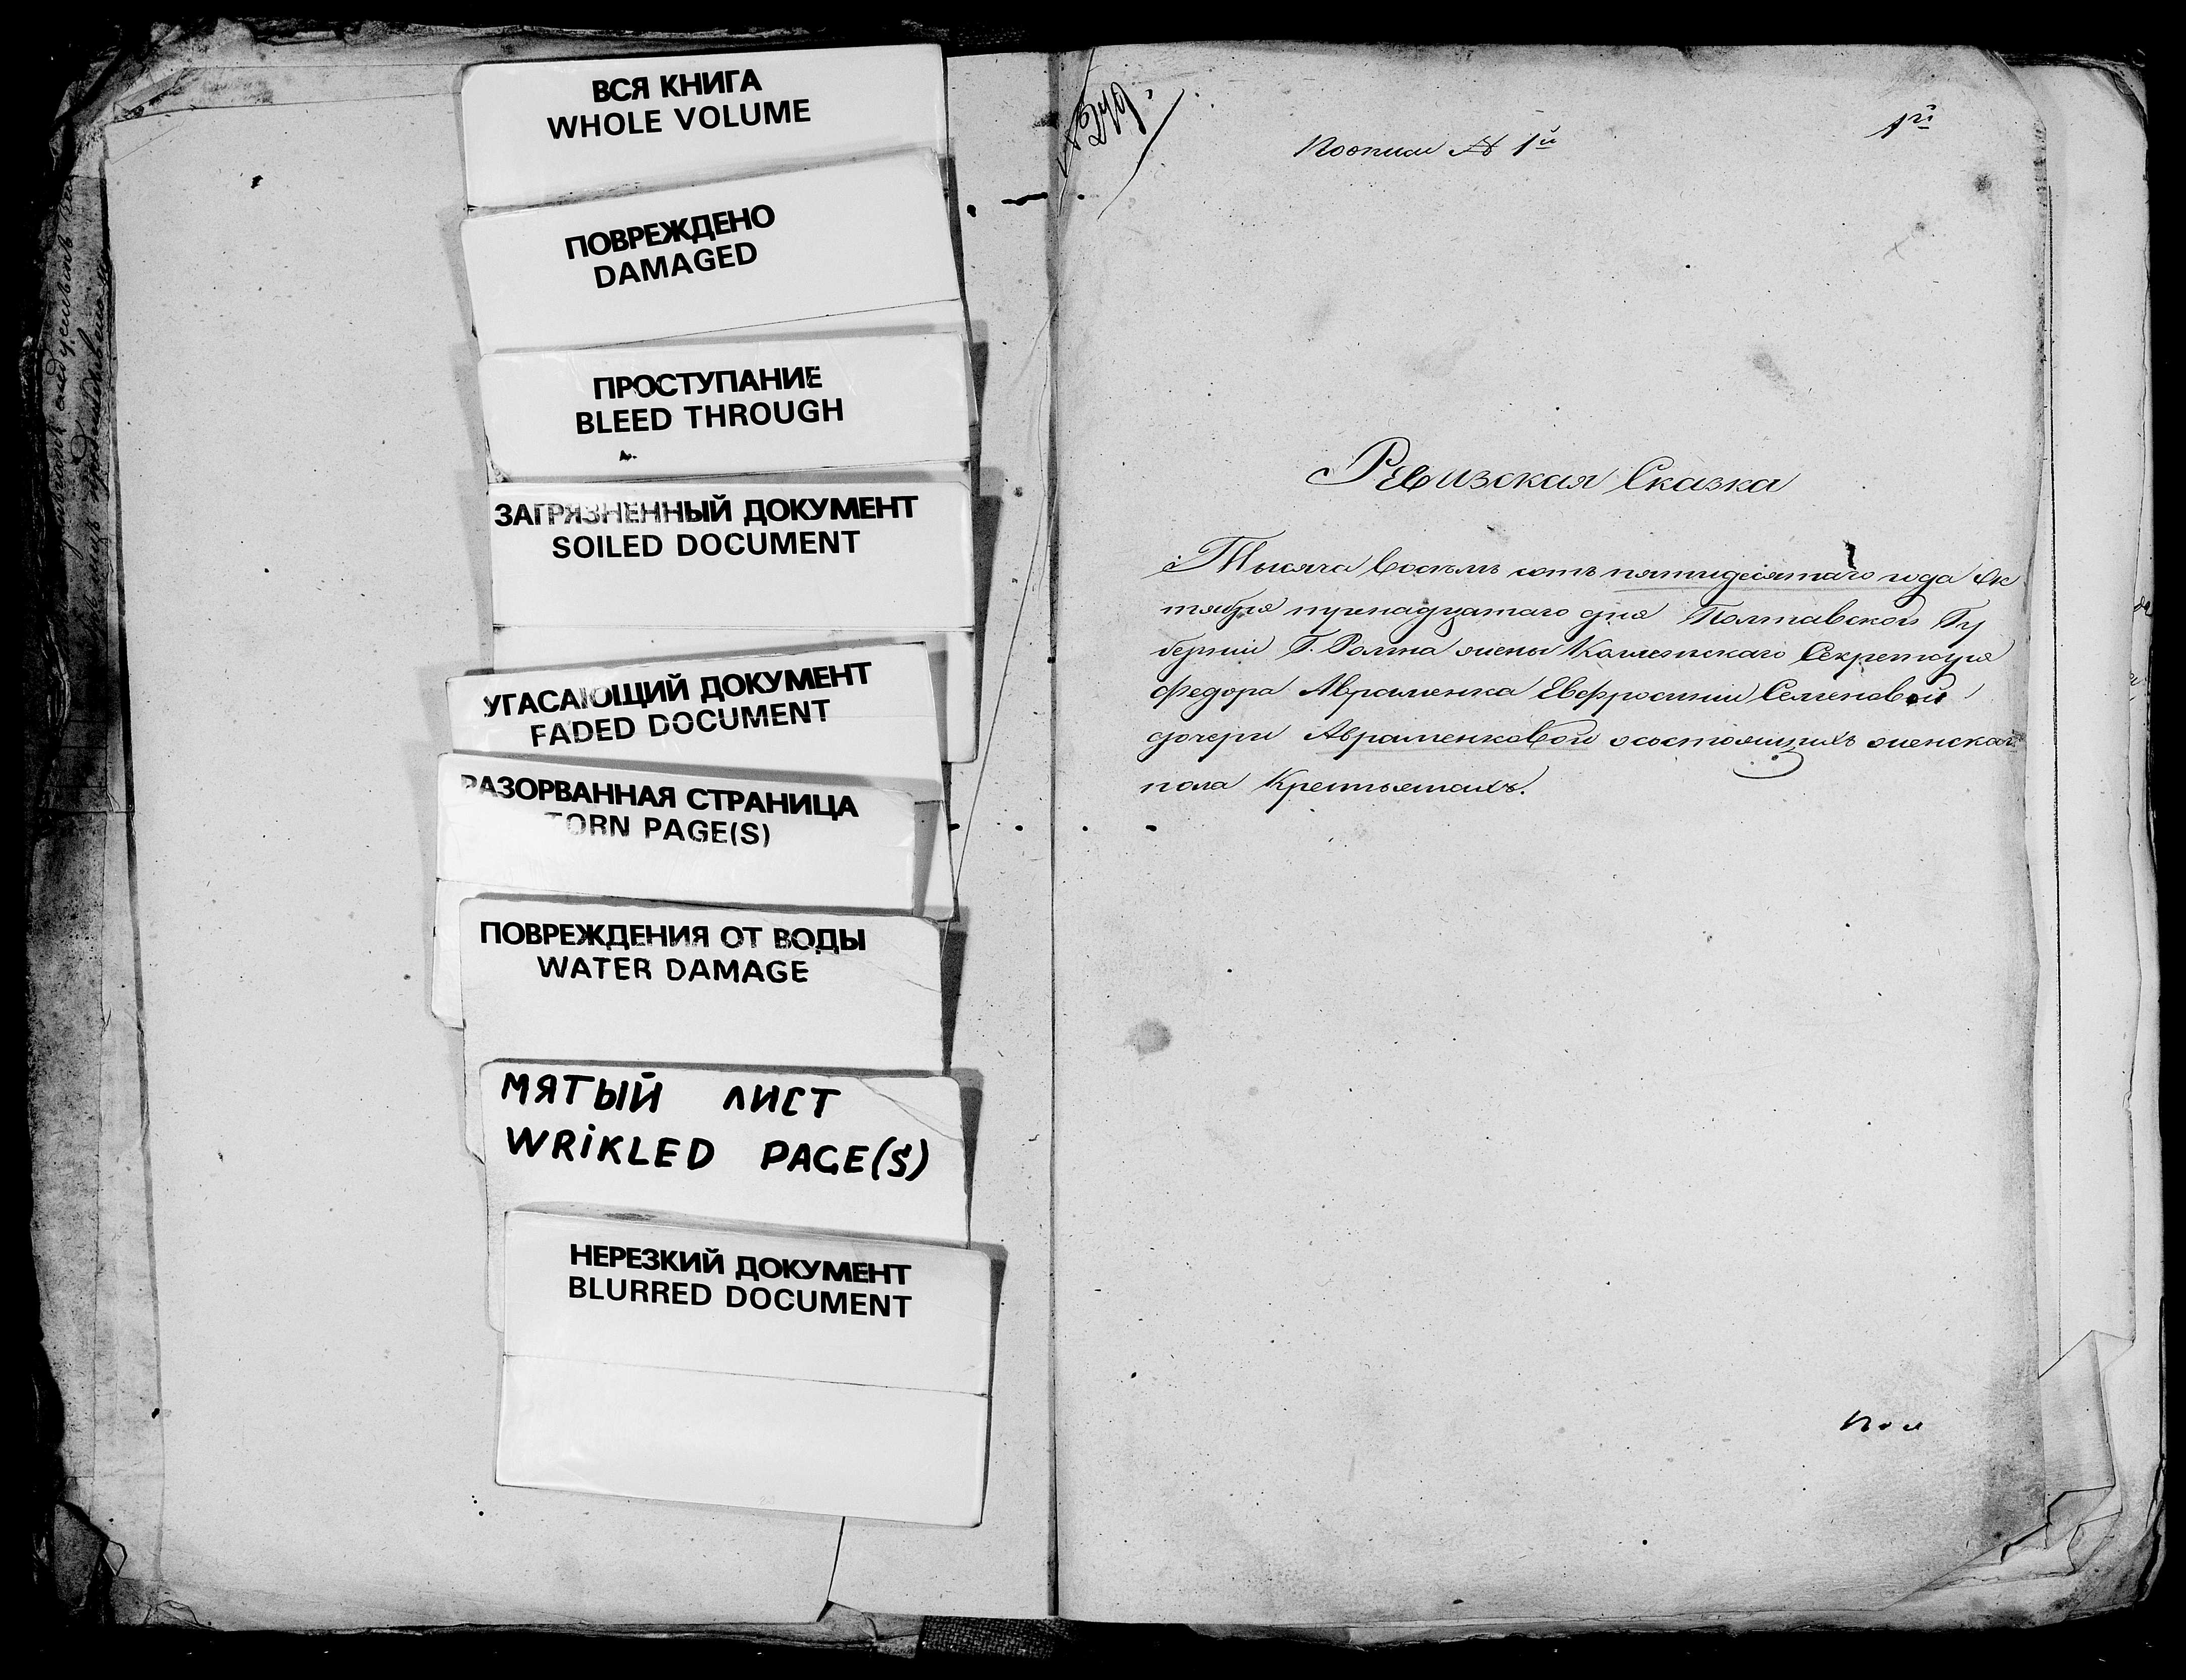 ВСЯ КНИГА
WHOLE VOLUME
ПОВРЕЖДЕНО
DAMAGED
ПРОСТУПАНИЕ
BLEED THROUGH
ЗАГРЯЗНЕННЫЙ ДОКУМЕНТ
SOILED DOCUMENT
УГАСАЮЩИЙ ДОКУМЕНТ
FADED DOCUMENT
РАЗОРВАННАЯ СТРАНИЦА
TORN PAGE(S)
ПОВРЕЖДЕНИЯ ОТ ВОДЫ
WATER DAMAGE
МЯТЫЙ ЛИСТ
WRiKLED PAGE(S)
НЕРЕЗКИЙ ДОКУМЕНТ
BLURRED DOCUMENT
1й
Поописи № 1й
Ревизская Сказка
Тысяча восемь сотъ пятидесятаго года Ок
тября дня Полтавской Гу
берніи Г. Ромна жены Коллежскаго Секретаря
Федора Авраменка Евфросиніи Семеновой
дочери Авраменковой осостоящихъ женскаго
пола Крестьянахъ.
Пол